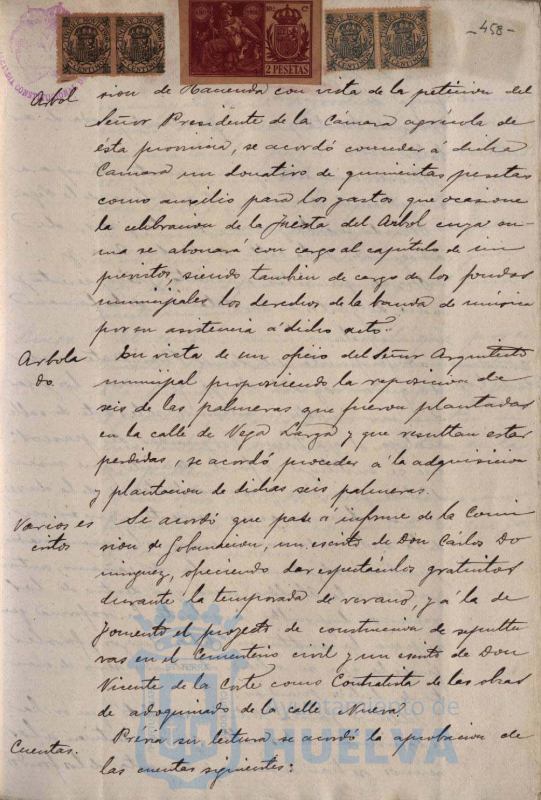 -458-
2 PESETAS
Arbol
sion de Hacienda con vista de la peticion del
Señor Presidente de la Cámara agrícola de
ésta provincia, se acordó conceder á dicha
Camara un donativo de quinientas pesetas
como auxilio para los gastos que ocasione
la celibracion de la Fiesta del Arbol cuya su-
ma se abonará con cargo al capitulo de im
previstos, siendo tambien de cargo de los fondos
municipales los derechos de la banda de música
por su asistencia á dicho acto.
Arbola
do.
En vista de un oficio del Señor Arquitecto
municipal proponiendo la reposicion de
seis de las palmeras que fueron plantadas
en la calle de Vega Larga y que resultan estar
perdidas, se acordó proceder á la adquisicion
y plantacion de dichas seis palmeras.
Varios es
critos
Se acordó que pase á informe de la Comi
sion de Gobernacion, un escrito de Don Cárlos Do
minguez, ofreciendo dar espectáculos gratuitos
durante la temporada de verano, y á la de
Fomento el proyecto de construccion de sepultu
ras en el Cementerio civil y un escrito de Don
Vicente de la Corte como Contratista de las obras
de adoquinado de la calle Nueva.
Cuentas.
Prévia su lectura se acordó la aprobacion de
las cuentas siguientes:
Ayuntamiento de
HUELVA